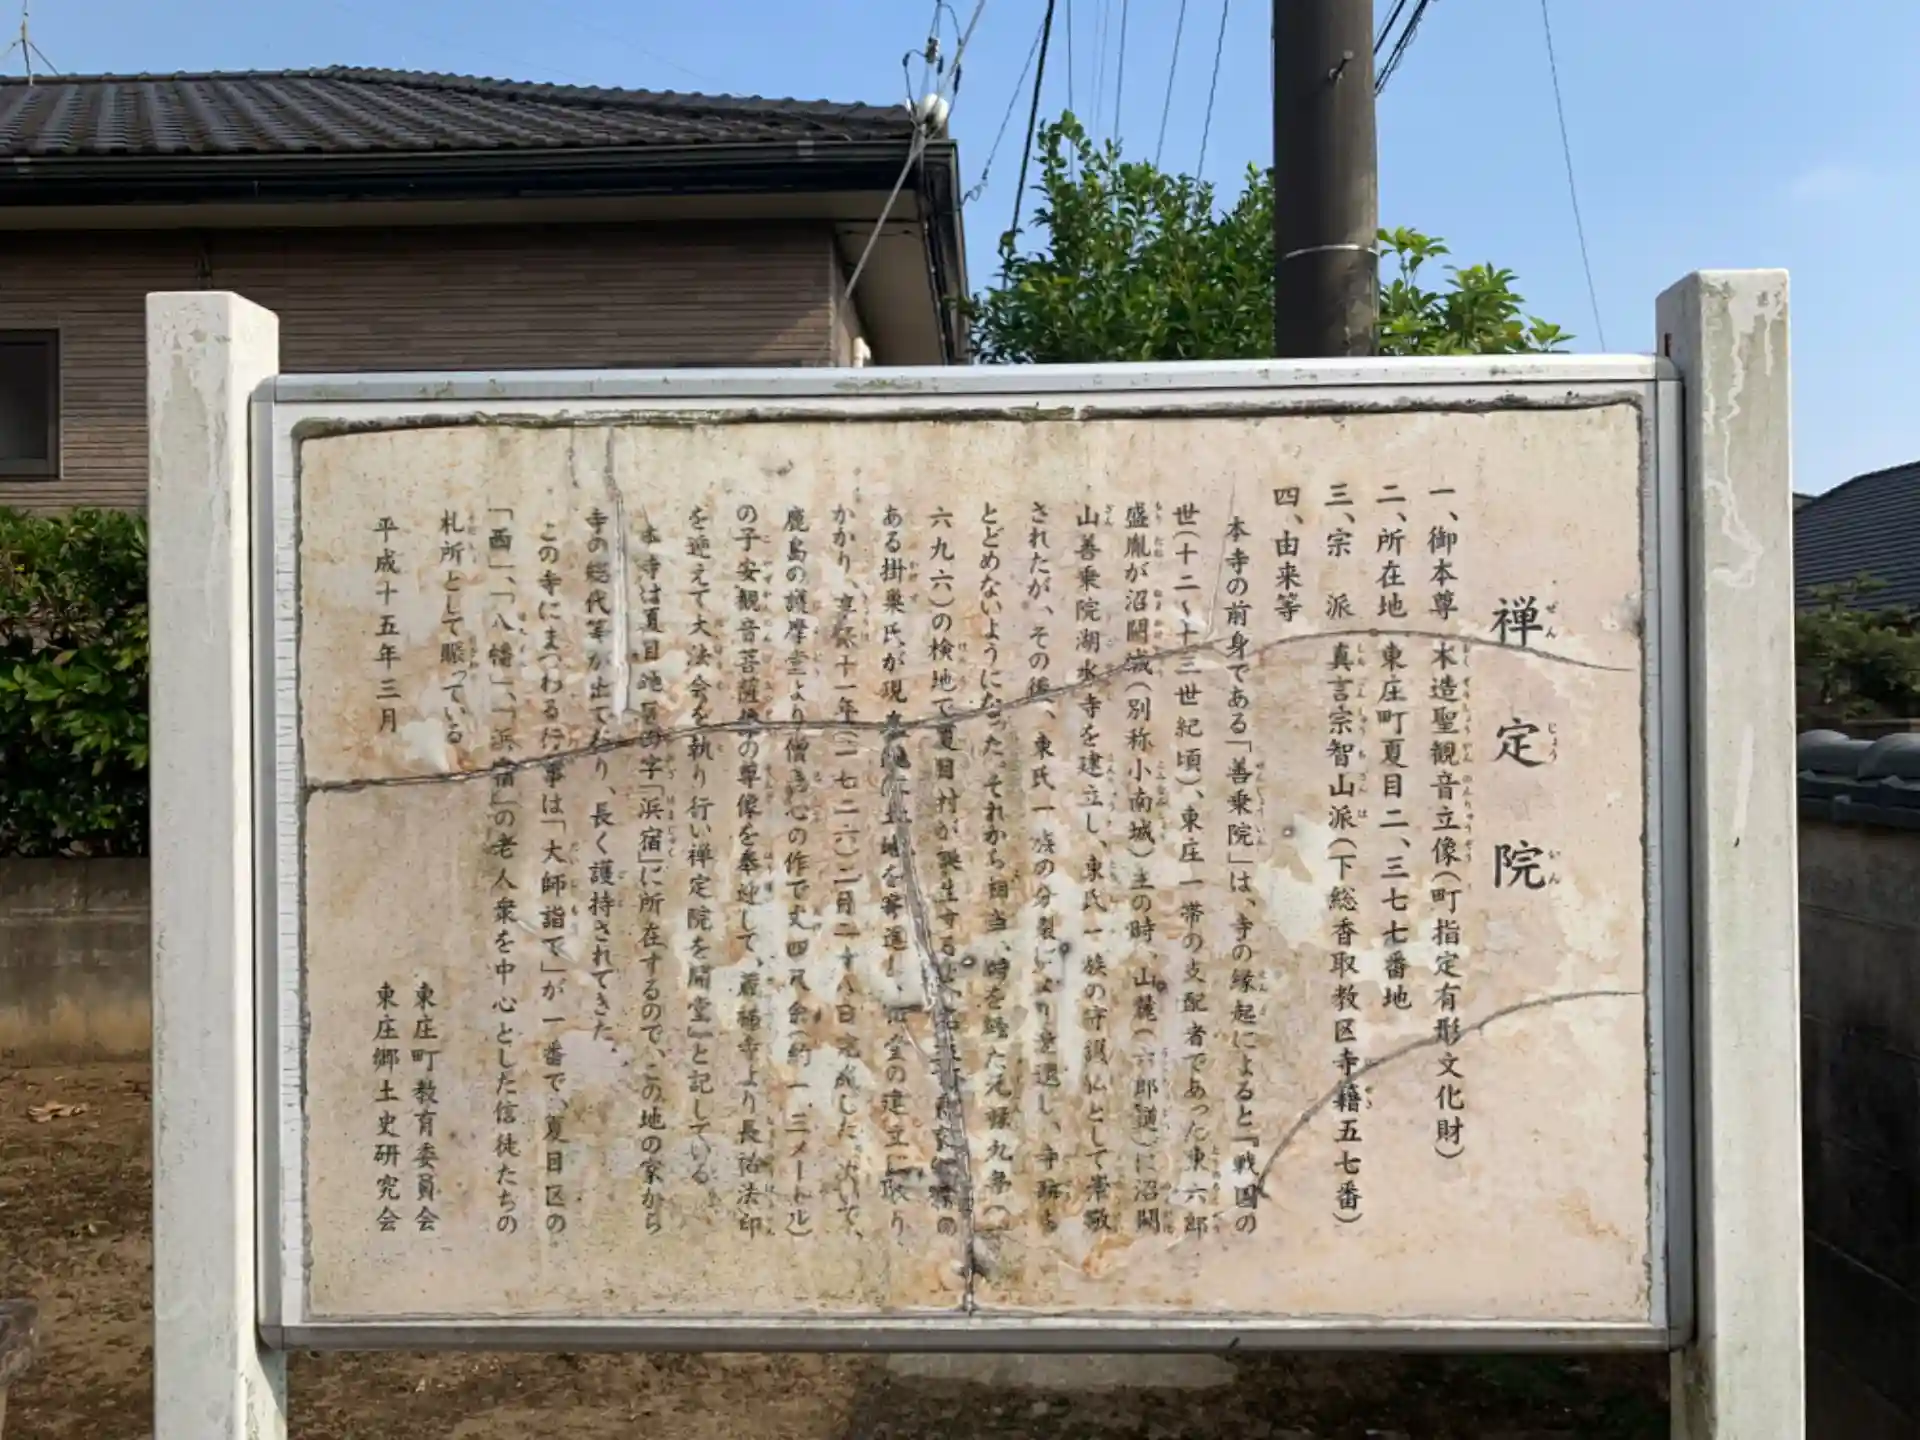 禅定院
一、御本尊 木造聖観音立像(町指定有形文化財)
二、所在地 東庄町夏目二、三七七番地
三、宗 派 真言宗智山派(下総香取教区寺籍五七番)
四、由来等
本寺の前身である「善乗院」は、寺の縁起によると『戦国の
世(十二〜十三世紀頃)、東庄一帯の支配者であった東六郎
盛胤が沼闕城(別称小南城)主の時、山麓(六郎道)に沼闕
山善乗院湖水寺を建立し、東氏一族の守護仏として崇敬
されたが、その後、東氏一族の分裂により
とどめないようになった。それから相当、時を経た元禄九年(一
六九六)の検地で夏目村が誕生する
ある掛巣氏が現 土地を寄進し、 堂の建立に取り
かかり、享保十一年(一七二六)二月二十八日完成した。次いで、
鹿島の護摩堂より僧 心の作で丈四尺余(約一、三メートル)
の子安観音菩薩様の尊像を奉迎して、 福寺より長 法印
を迎えて大法会を執り行い禅定院を開堂』と記している
本寺は夏目地区の字「浜宿」に所在するので、この地の家から
寺の総代等が出ており、長く護持されてきた。
この寺にまつわる行事は「大師詣で」が一番で、夏目区の
「西」、「八幡」、「浜宿」の老人衆を中心とした信徒たちの
札所として賑っている
平成十五年三月
東庄町教育委員会
東庄郷土史研究会